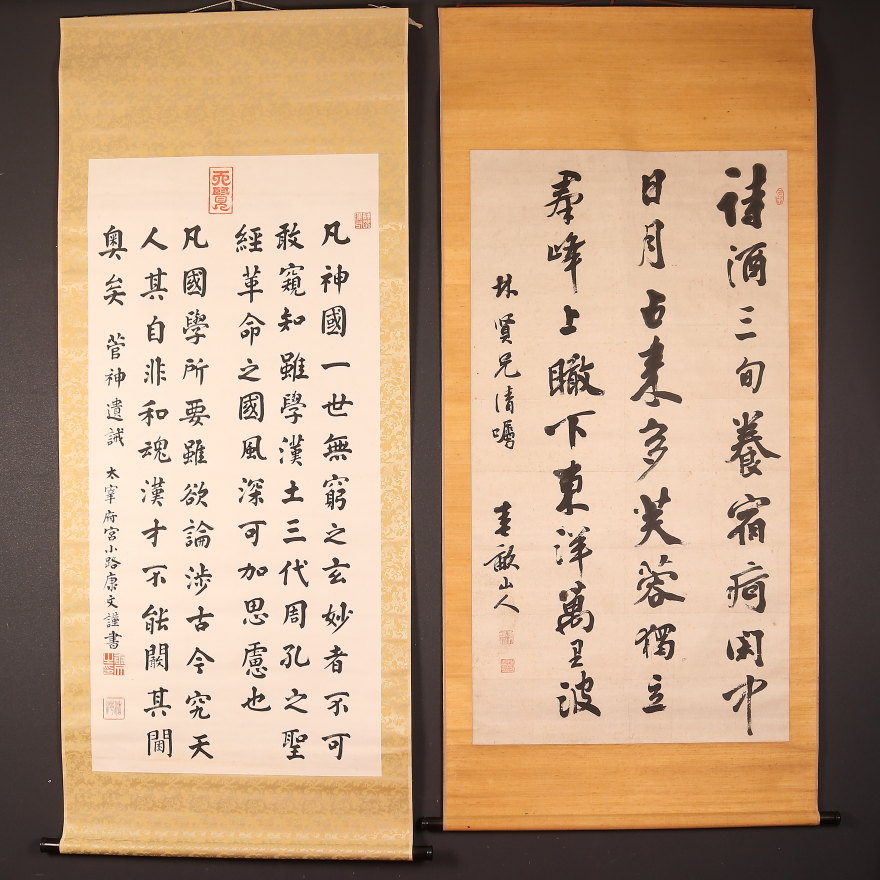 詩酒三旬養宿痾閑中
日月占来多芙蓉獨立
羣峰上瞰下東洋萬里波
林賢兄清嘱
春畝山人
天覧
凡神國一世無窮之玄妙者不可
敢窺知雖學漢土三代周孔之聖
經革命之國風深可加思慮也
凡國學所要雖欲論涉古今究天
人其自非和魂漢才不能闞其閫
奥矣 菅神遺誡 太宰府宮小路康文謹書